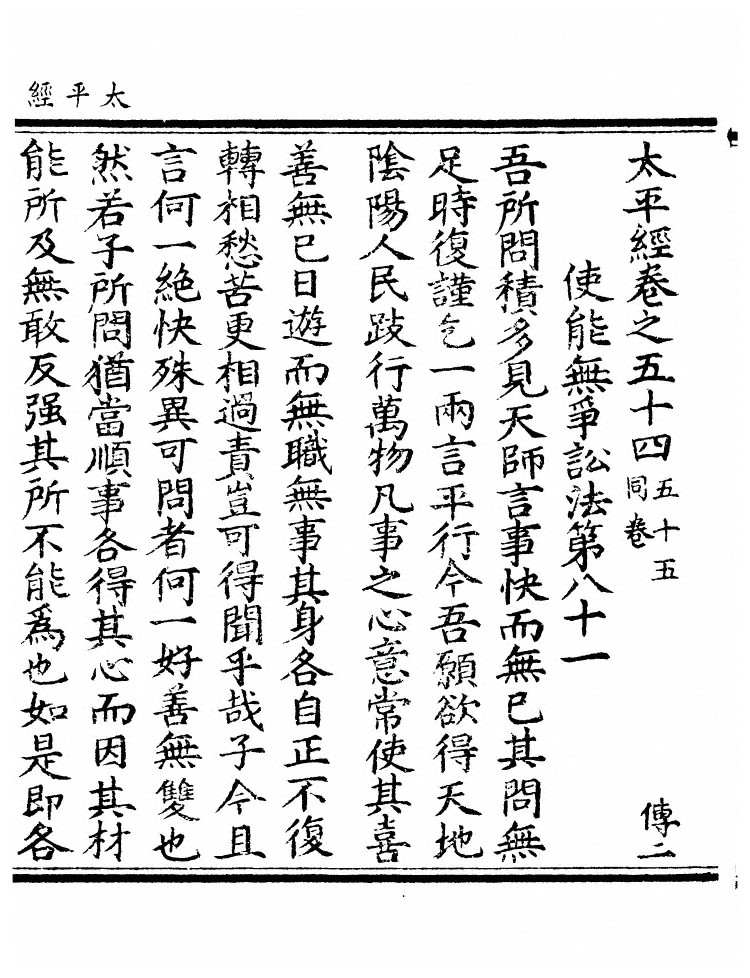 太平經
太平經卷之五十四 五十五同卷 傅二
使能無爭訟法第八十一
吾所問積多見天師言事快而無已其問無
足時復謹乞一兩言平行今吾願欲得天地
陰陽人民跂行萬物凡事之心意常使其喜
善無已日遊而無職無事其身各自正不復
轉相愁苦更相過責豈可得聞乎哉子今且
言何一絕快殊異可問者何一好善無雙也
然若子所問猶當順事各得其心而因其材
能所及無敢反强其所不能爲也如是即各